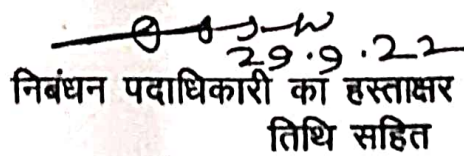 29.9.22
निबंधन पदाधिकारी का हस्ताक्षर
तिथि सहित